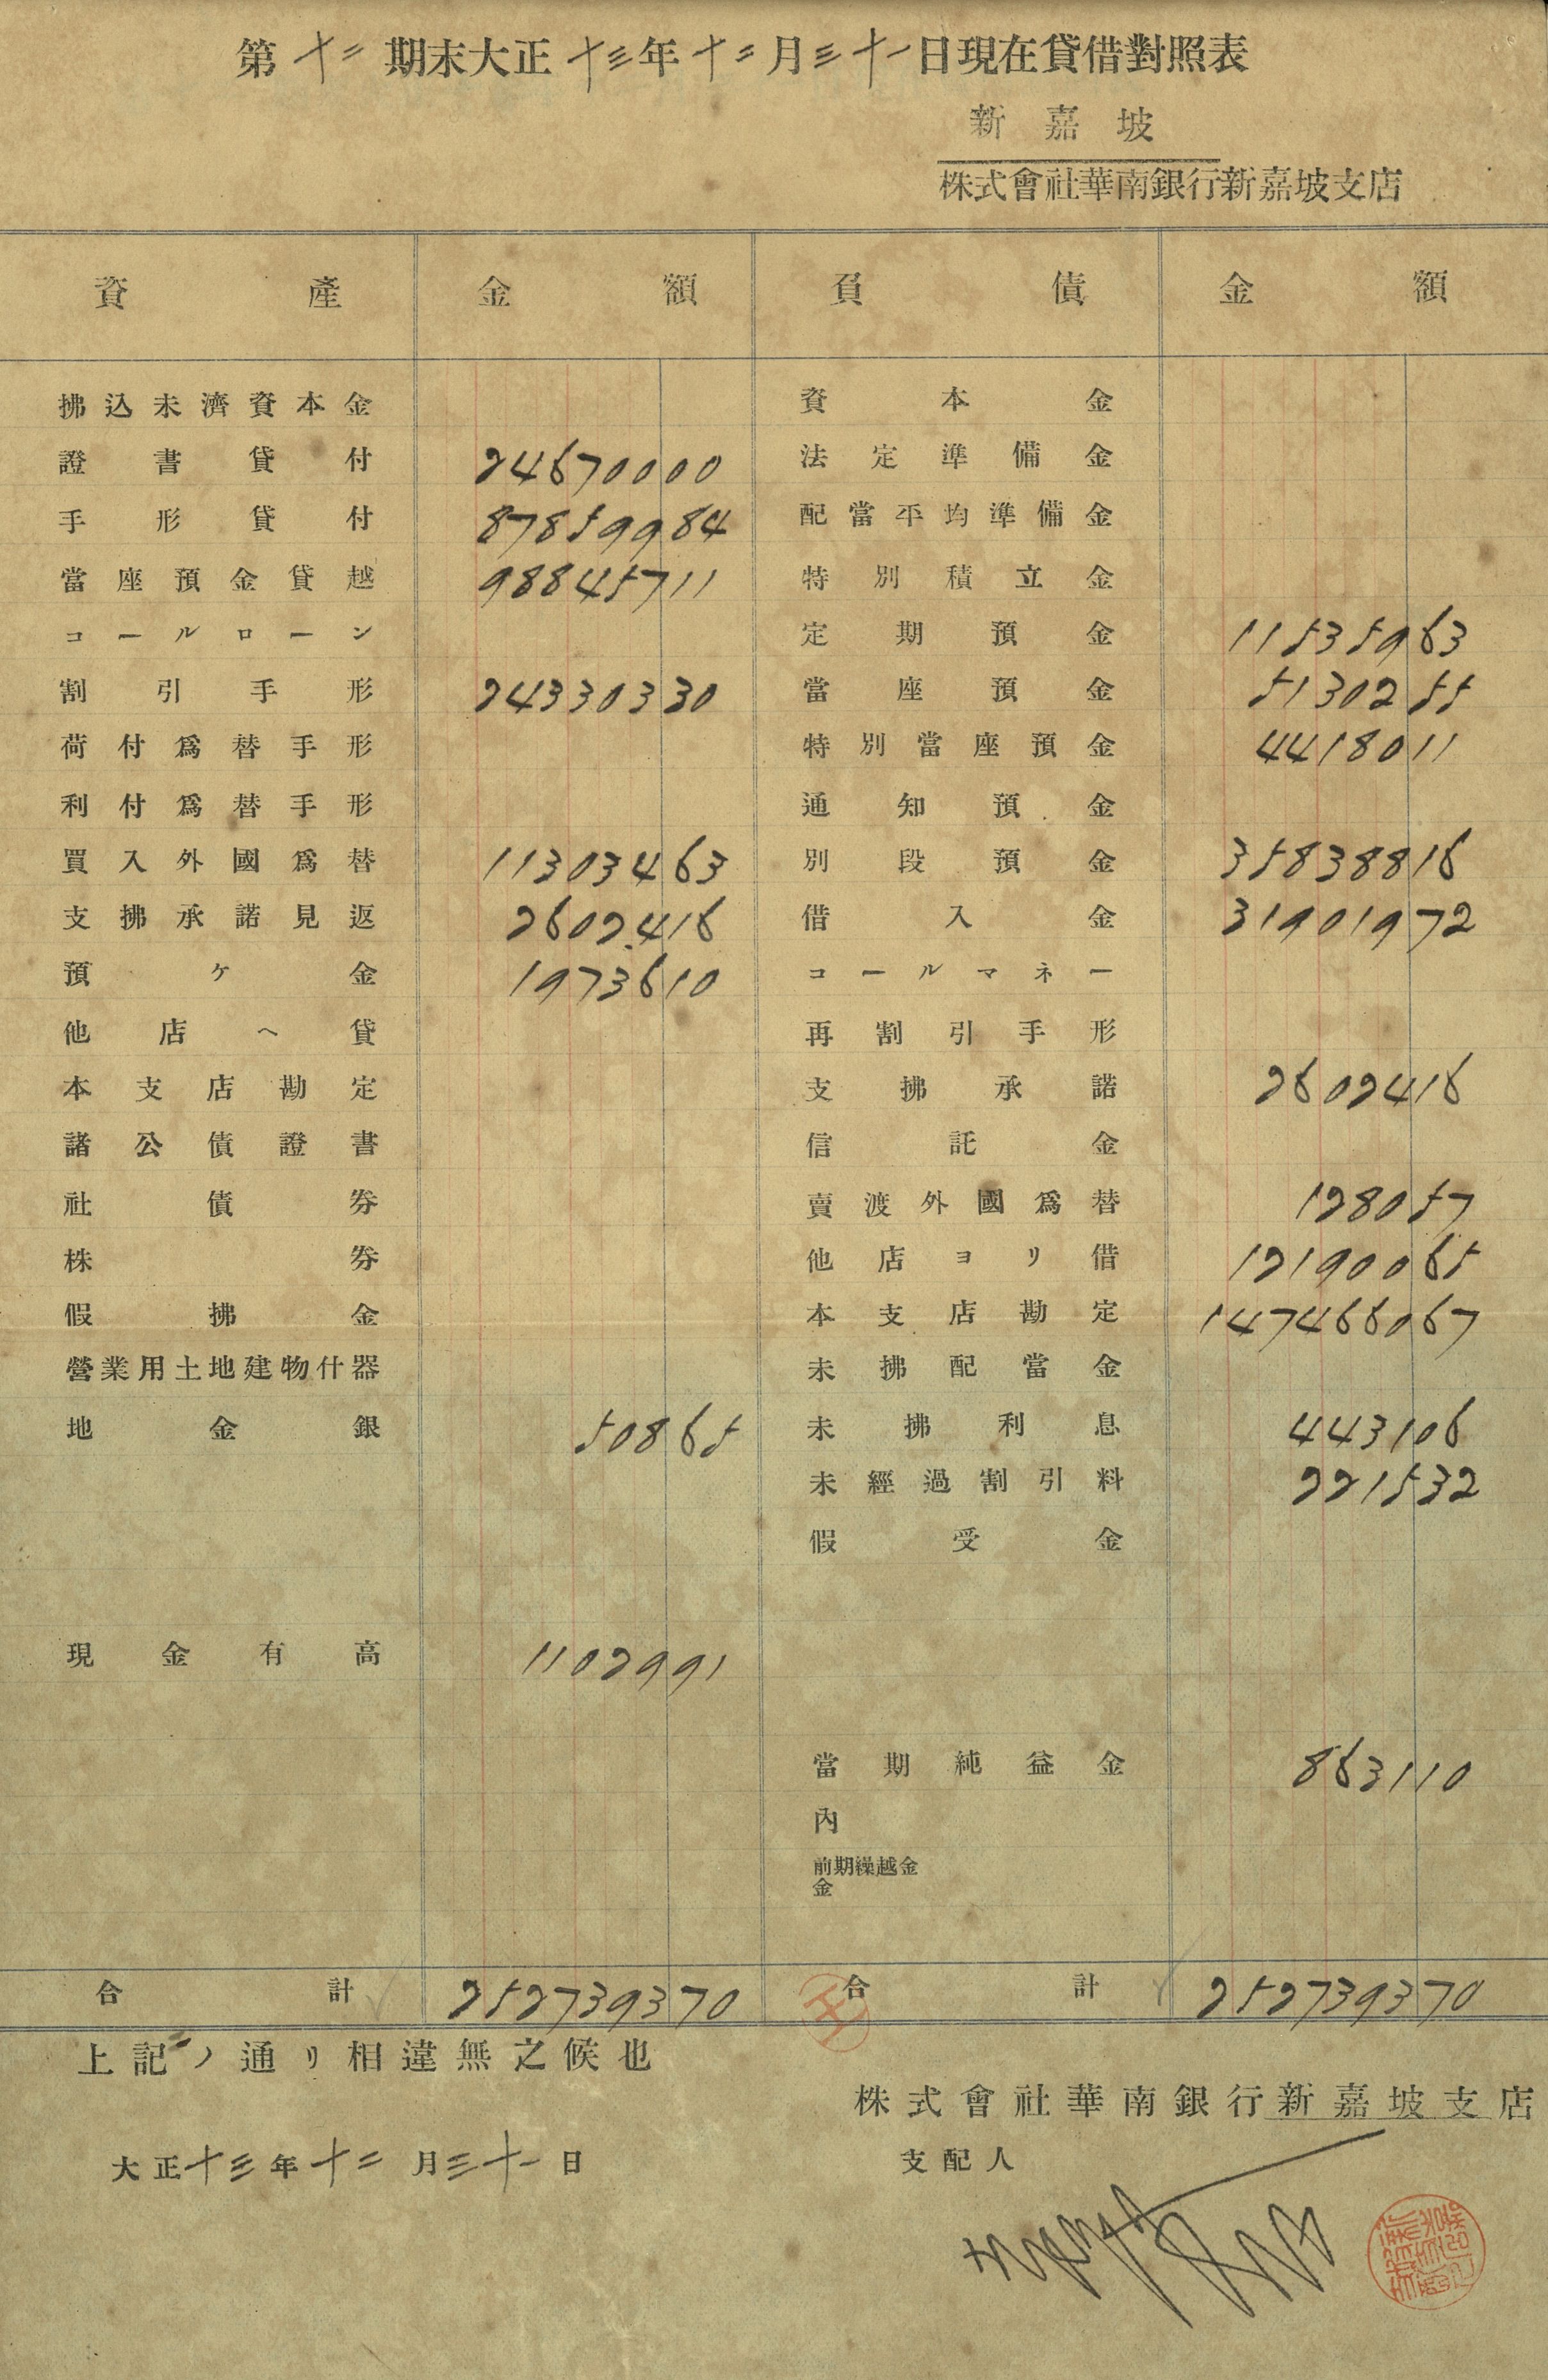 第十二期末大正十三年十二月三十一日現在貸借對照表
新嘉坡
株式會社華南銀行新嘉坡支店
資產 金額 負債 金額
拂込未濟資本金 資本金
證書貸付 24670000 法定準備金
手形貸付 87859984 配當平均準備金
當座預金貸越 98845711 特別積立金
コールローン 定期預金 11535963
割引手形 24330330 當座預金 5130255
荷付爲替手形 特別當座預金 4418011
利付爲替手形 通知預金
買入外國爲替 11303463 別段預金 35838816
支拂承諾見返 2602416 借入金 31901972
預ケ金 1973610 コールマネー
他店へ貸 再割引手形
本支店勘定 支拂承諾 2602416
諸公債證書 信託金
社債券 賣渡外國爲替 128057
株券 他店ヨリ借 12190065
假拂金 本支店勘定 147466067
營業用土地建物什器 未拂配當金
地金銀 50865 未拂利息 443106
未經過割引料 221532
假受金
現金有高 1102991
當期純益金 863110
內
前期繰越金
金
合計 252739370 合計 252739370
上記ノ通リ相違無之候也
株式會社華南銀行新嘉坡支店
大正十三年十二月三十一日 支配人